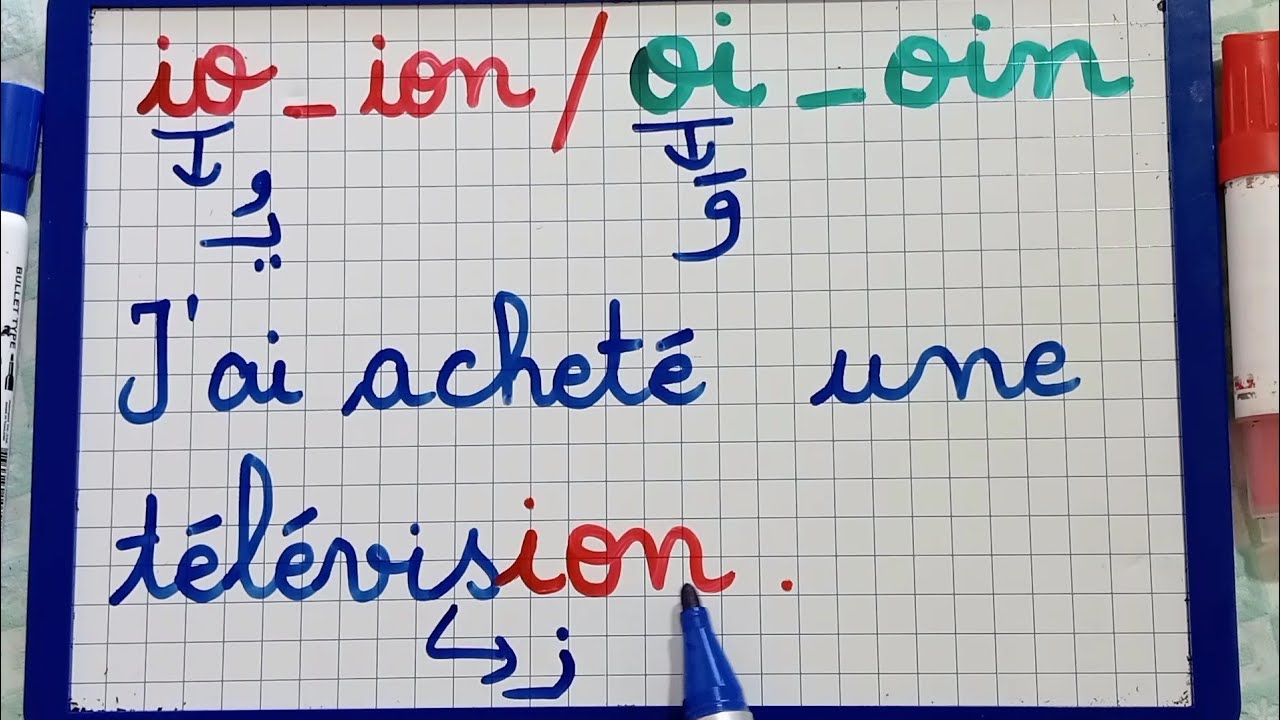 io _ ion / oi _ oin
يُو
وَ
J'ai acheté une
télévision .
ز
BULLET TYPE